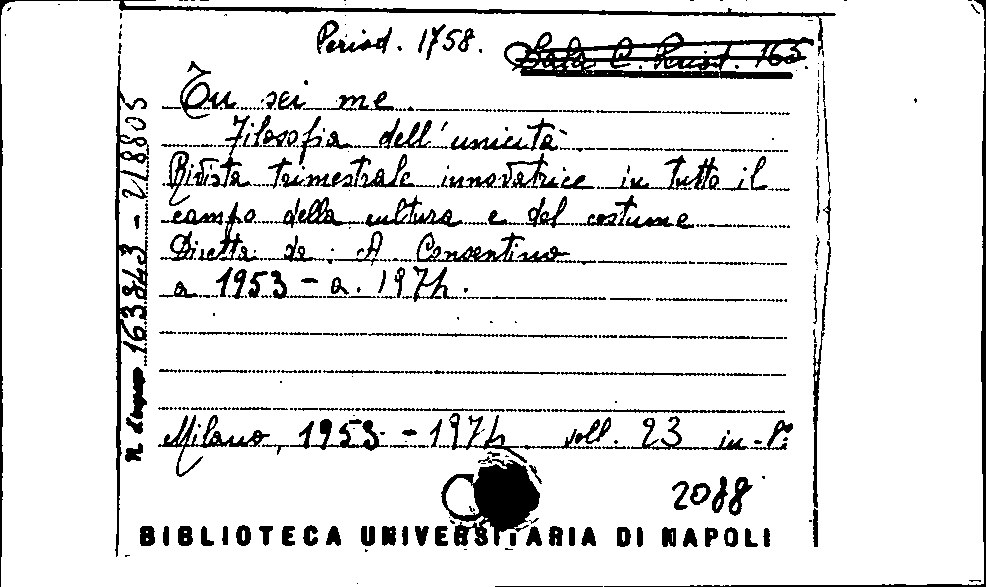 Period. 1758.
Sala C. Period. 165.
Tu sei me.
Filosofia dell'unicità.
Rivista trimestrale innovatrice in tutto il
campo della cultura e del costume
Diretta da: A Consentino
a 1953 - a. 1974.
Milano, 1953 - 1974 voll. 23 in-8°
2088
BIBLIOTECA UNIVERSITARIA DI NAPOLI
163843 - 218805